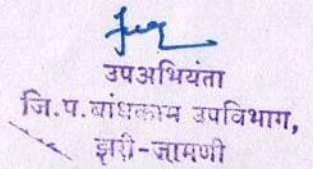 उपअभियंता
जि.प.बांधकाम उपविभाग,
झरी-जामणी